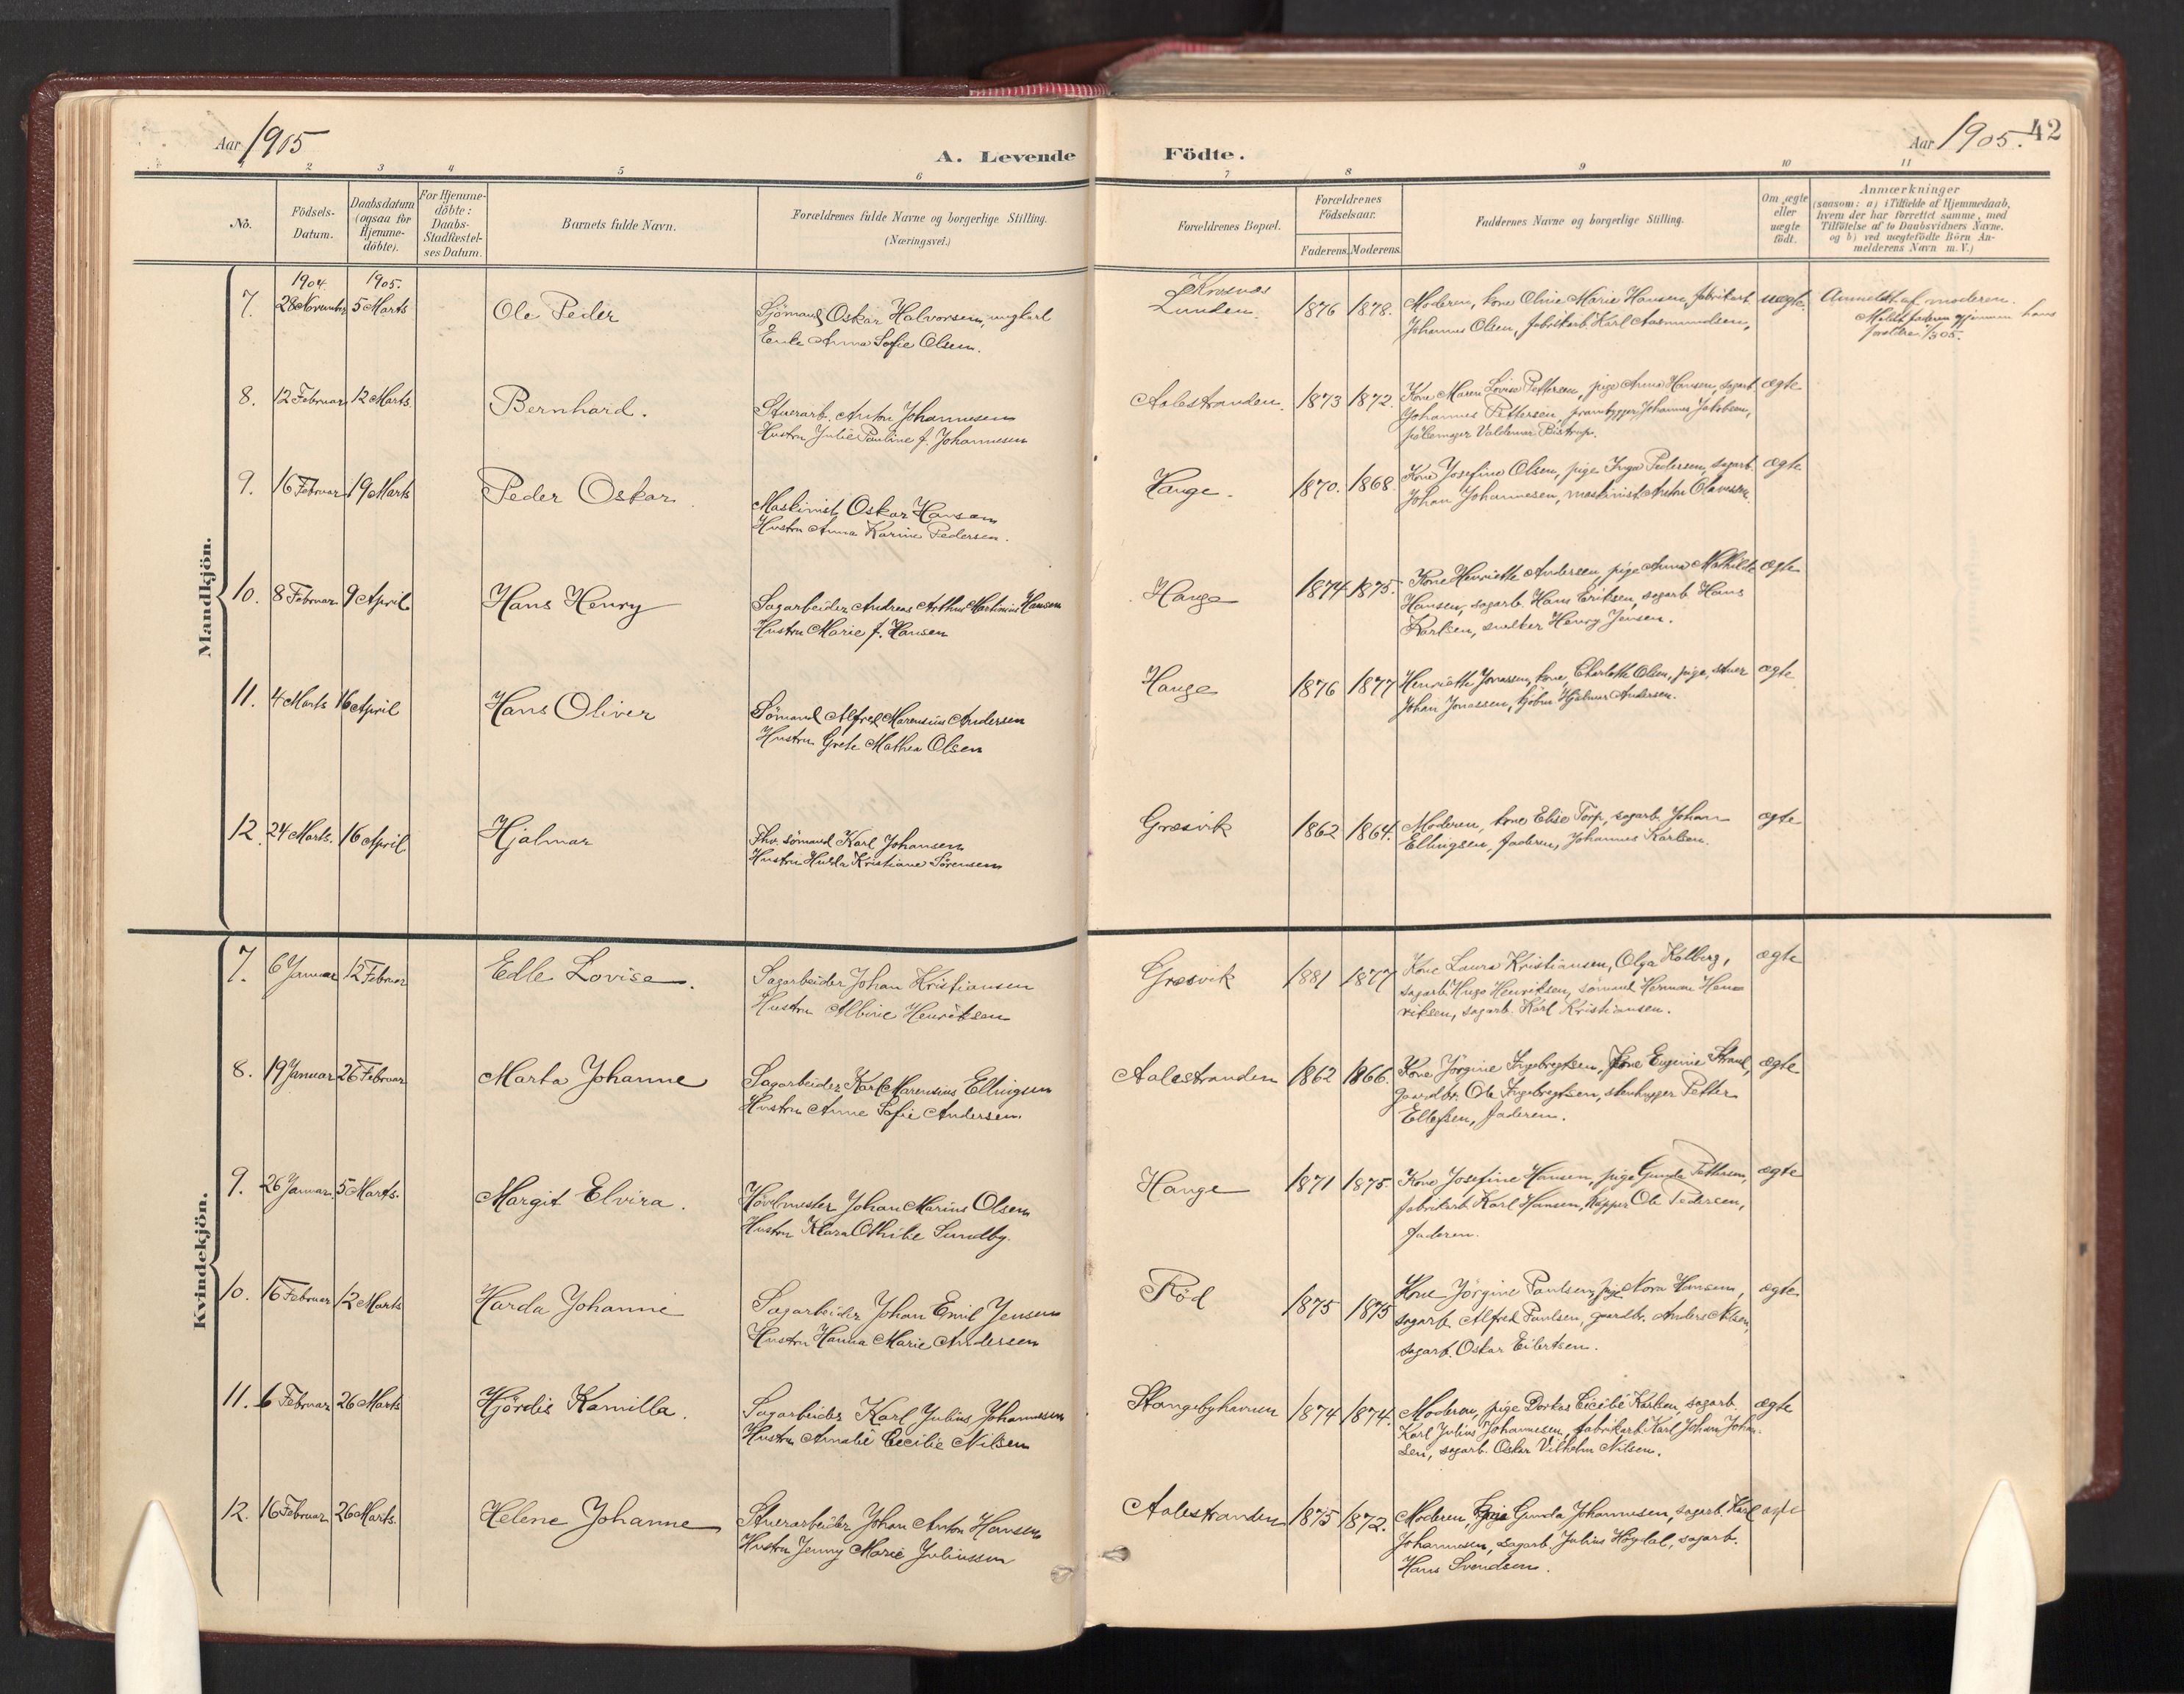 Aar 1905
A. Levende Födte.
Aar 1905. 42
1 2 3 4 5 6 7 8 9 10 11
No.
Födsels-Datum.
Daabsdatum (ogsaa for Hjemme-döbte).
For Hjemme-döbte: Daabs-Stadfæstel-ses Datum.
Barnets fulde Navn.
Forældrenes fulde Navne og borgerlige Stilling. (Næringsvei.)
Forældrenes Bopæl.
Forældrenes Födselsaar.
Faderens. Moderens.
Faddernes Navne og borgerlige Stilling.
Om ægte eller uægte födt.
Anmærkninger
(saasom: a) i Tilfælde af Hjemmedaab,
hvem der har forrettet samme, med
Tilföielse af to Daabsvidners Navne.
og b) ved uægtefödte Börn An-
melderens Navn m.V.)
Mandkjön.
1904. 1905.
7. 28 November 5 Marts Ole Peder
Sjömand Oskar Halvorsen, ungkarl
Enke Anna Sofie Olsen.
Krosnes
Lunden. 1876 1878.
Moderen, kone Oline Marie Hansen, fabrikarb.
Johannes Olsen, fabrikarb. Karl Aasmundsen,
uægte.
Anmeldt af moderen.
Meldt faderen gjennem hans
forældre
8. 12 Februar 12 Marts Bernhard.
Stuerarb. Anton Johannesen
Hustru Julie Pauline f. Johannesen
Aalestranden. 1873 1872.
Kone Maren Lovise Pettersen, pige Anna Hansen, sagarb.
Johannes Pettersen, prambygger Johannes Jakobsen,
Valdemar Bistrup.
ægte
9. 16 Februar 19 Marts Peder Oskar
Maskinist Oskar Hansen
Hustru Anna Karine Pedersen.
Hauge. 1870. 1868.
Kone Josefine Olsen, pige Inga Pedersen, sagarb.
Johan Johannesen, maskinist Anton Olavesen.
ægte
10. 8 Februar 9 April Hans Henry
Sagarbeider Andreas Arthur Martinius Hansen
Hustru Marie f. Hansen
Hauge 1874 1875.
Kone Henriette Andersen, pige Anna Mathilde
Hansen, sagarb. Hans Eriksen, sagarb. Hans
Karlsen, snedker Henry Jensen.
ægte
11. 4 Marts 16 April Hans Oliver
Sömand Alfred Marensius Andersen
Hustru Grete Mathea Olsen
Hauge 1876 1877
Henriette Jonassen, kone, Charlotte Olsen, pige, stuer
Johan Jonassen, Hjalmar Andersen.
ægte
12. 24 Marts. 16 April Hjalmar
Fhv. sömand Karl Johansen
Hustru Hulda Kristiane Sörensen
Græsvik 1862 1864.
Moderen, kone Elise Torp, sagarb. Johan
Ellingsen, faderen, Johannes Karlsen.
ægte
Kvindekjön.
7. 6 Januar 12 Februar Edle Lovise.
Sagarbeider Johan Kristiansen
Hustru Albine Henriksen
Græsvik 1881 1877
Kone Laura Kristiansen, Olga Kolberg,
sagarb. Hugo Henriksen, sömand Herman Hen-
riksen, sagarb. Karl Kristiansen.
ægte
8. 19 Januar 26 Februar Marta Johanne
Sagarbeider Karl Marensius Ellingsen
Hustru Anne Sofie Andersen.
Aalestranden 1862 1866.
Kone Jörgine Ingebregtsen, kone Eugenie Strand,
gaardbr. Ole Ingebregtsen, stenhugger Petter
Ellefsen, faderen.
ægte
9. 26 Januar. 5 Marts. Margit Elvira.
Hövlmester Johan Marius Olsen
Hustru Klara Othilie Sundby.
Hauge 1871 1875.
Kone Josefine Hansen, pige Gunda Pettersen,
fabrikarb. Karl Hansen, Ole Pedersen,
faderen.
ægte
10. 16 Februar 12 Marts Harda Johanne
Sagarbeider Johan Emil Jensen
Hustru Hanna Marie Andersen
Röd 1875 1875
Kone Jörgine Paulsen, pige Nora Hansen,
sagarb. Alfred Paulsen, gaardbr. Anders Nilsen,
sagarb. Oskar Eilertsen.
ægte
11. 6 Februar 26 Marts Hjördis Kamilla.
Sagarbeider Karl Julius Johannesen
Hustru Amalie Cecilie Nilsen
Stangebyhavnen 1874 1874.
Moderen, pige Dorkas Cecilie Karlsen, sagarb.
Karl Julius Johannesen, fabrikarb. Karl Johan Johan-
sen, sagarb. Oskar Vilhelm Nilsen.
ægte
12. 16 Februar 26 Marts. Helene Johanne
Stuerarbeider Johan Anton Hansen
Hustru Jenny Marie Juliussen
Aalestranden 1875 1872.
Moderen, pige Gunda Johannesen, sagarb. Karl
Johannesen, sagarb. Julius Högdal, sagarb.
Hans Svendsen.
ægte